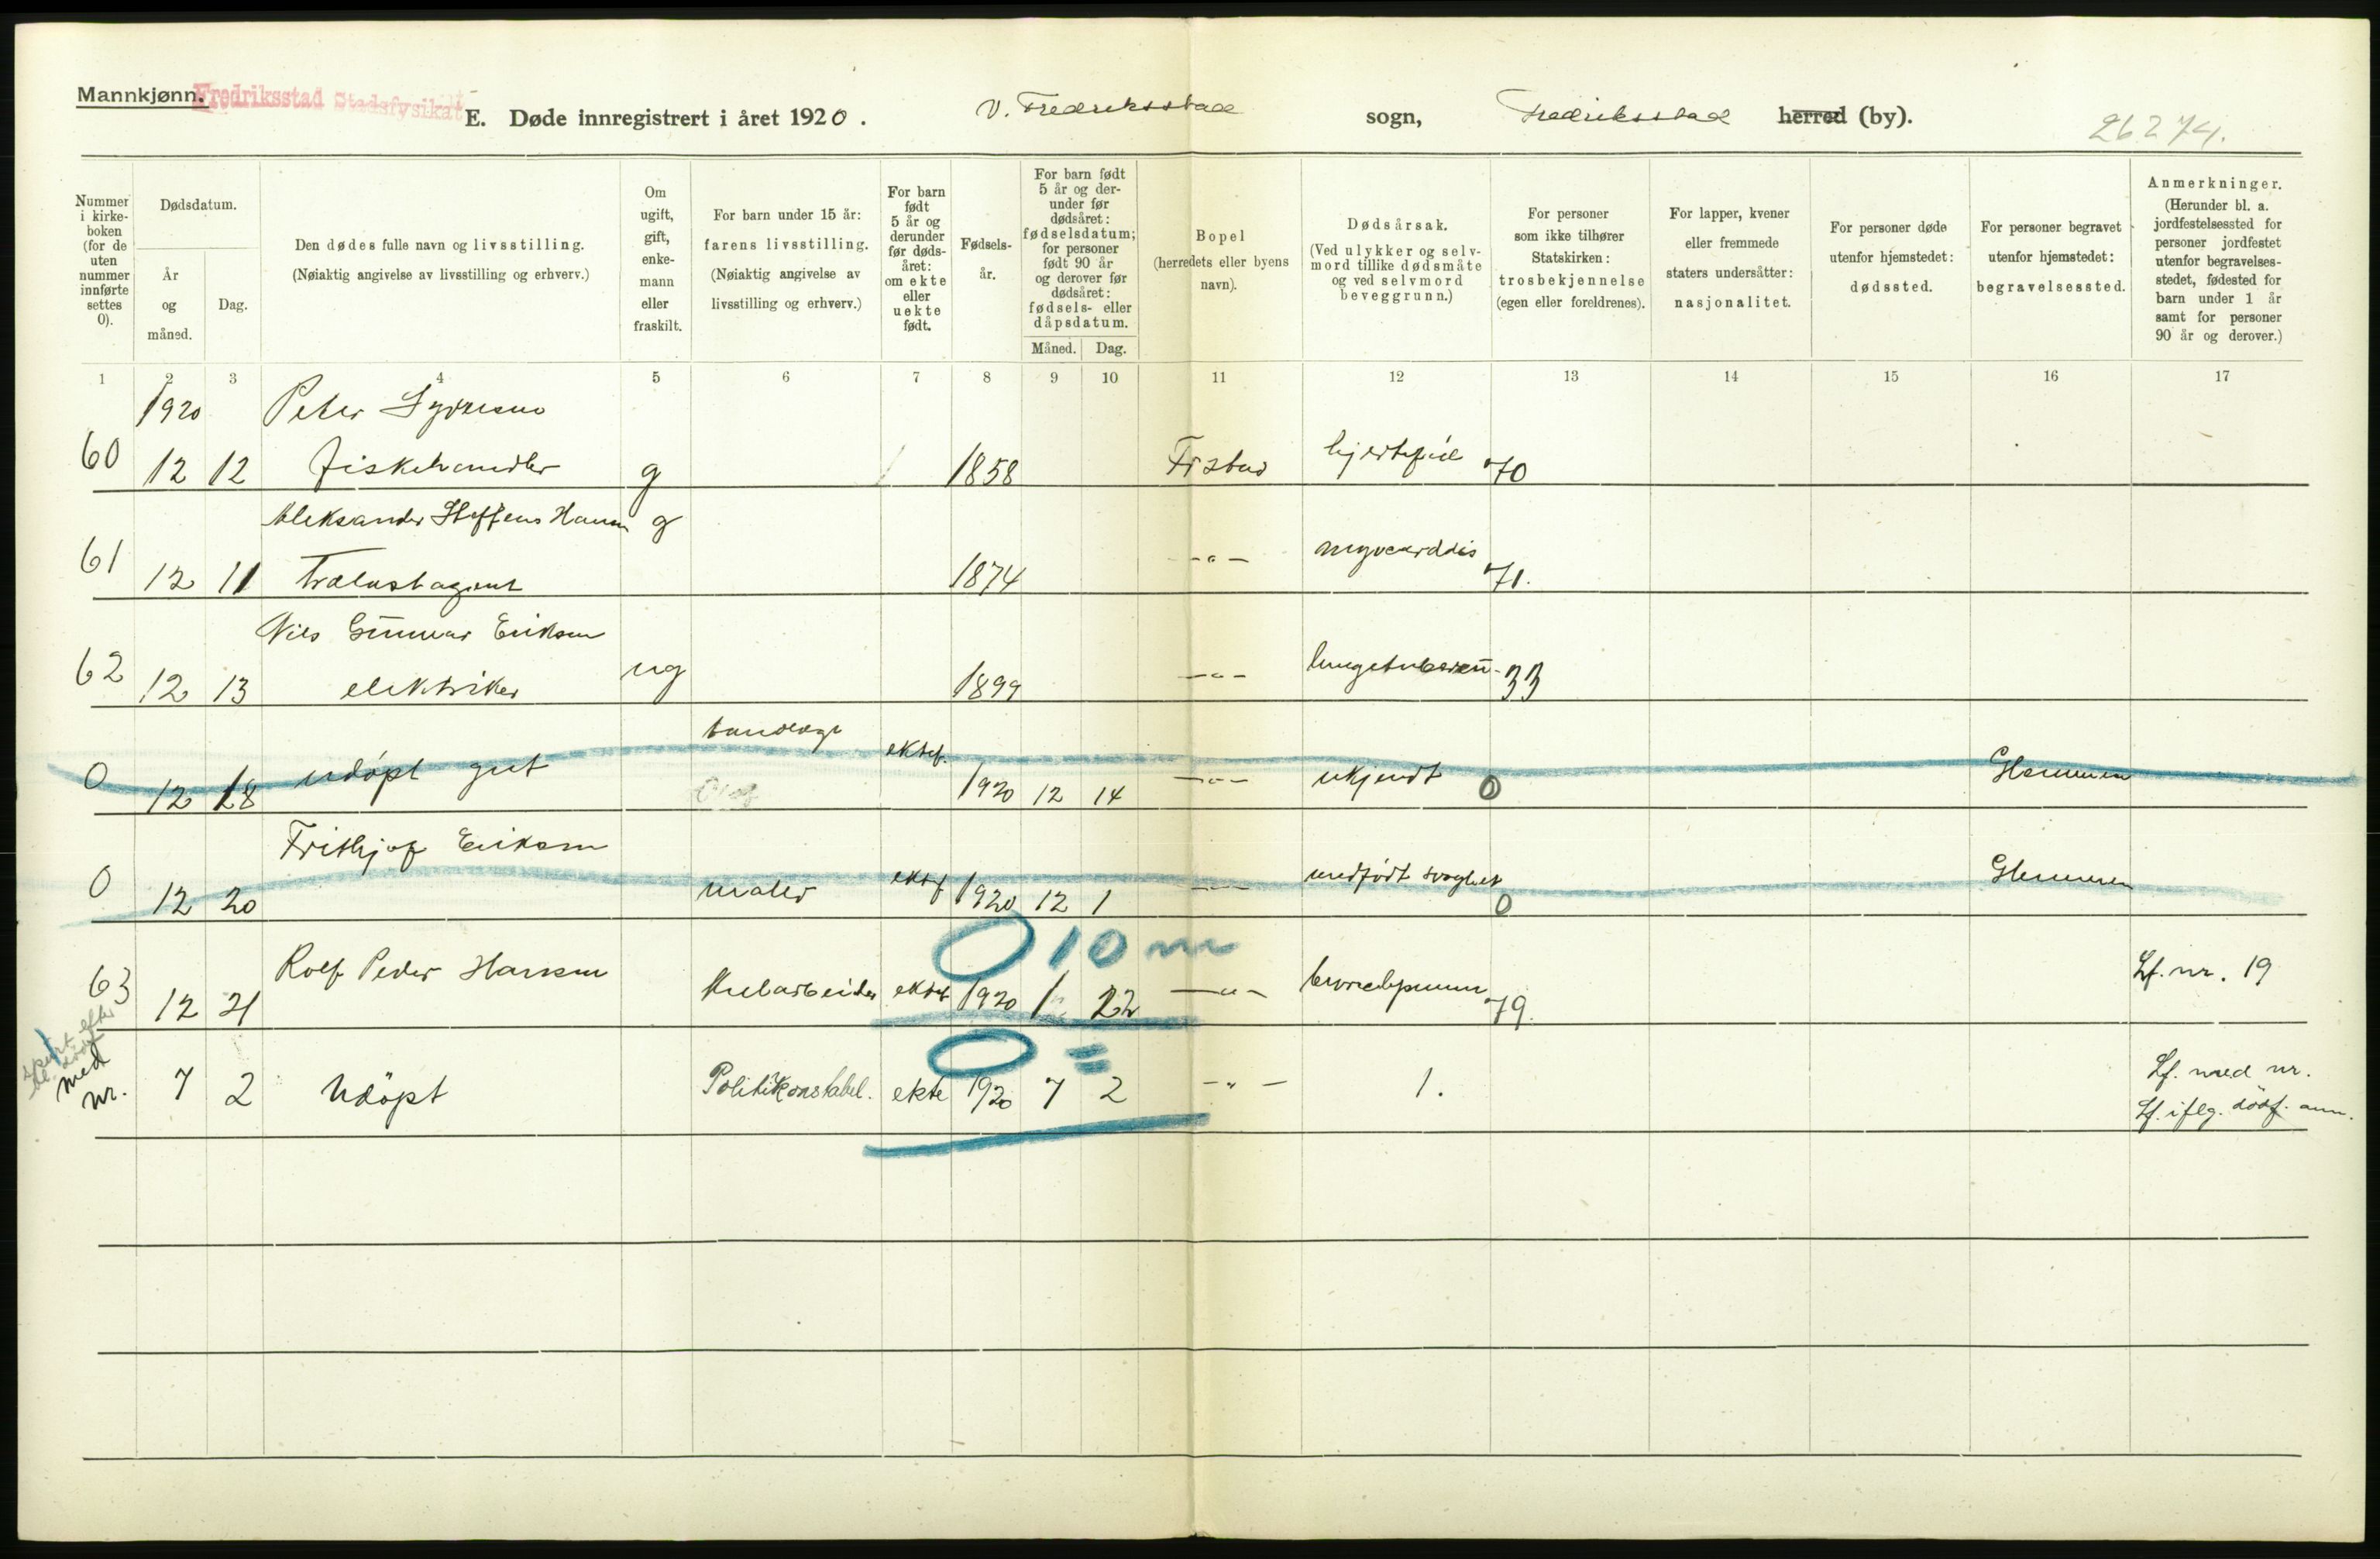 Mannkjønn.
Fredriksstad Stadsfysikat
E. Døde innregistrert i året 1920.
V. Fredriksstad sogn, Fredriksstad herred (by).
26274.
Nummer i kirke-boken (for de uten nummer innførte settes 0).
Dødsdatum.
År og måned.
Dag.
Den dødes fulle navn og livsstilling.
(Nøiaktig angivelse av livsstilling og erhverv.)
Om ugift, gift, enke-mann eller fraskilt.
For barn under 15 år:
farens livsstilling.
(Nøiaktig angivelse av livsstilling og erhverv.)
For barn født 5 år og derunder før døds-året: om ekte eller uekte født.
Fødsels-år.
For barn født 5 år og der-under før dødsåret: fødselsdatum; for personer født 90 år og derover før dødsåret: fødsels- eller dåpsdatum.
Måned. Dag.
Bopel
(herredets eller byens navn).
Dødsårsak.
(Ved ulykker og selv-mord tillike dødsmåte og ved selvmord beveggrunn.)
For personer som ikke tilhører Statskirken:
trosbekjennelse
(egen eller foreldrenes).
For lapper, kvener eller fremmede staters undersåtter:
nasjonalitet.
For personer døde utenfor hjemstedet:
dødssted.
For personer begravet utenfor hjemstedet:
begravelsessted.
Anmerkninger.
(Herunder bl. a. jordfestelsessted for personer jordfestet utenfor begravelses-stedet, fødested for barn under 1 år samt for personer 90 år og derover.)
1 2 3 4 5 6 7 8 9 10 11 12 13 14 15 16 17
1920 Peter
60 12 12 fiskehandler g 1858 Frstad hjertefeil 70
Aleksander Steffens Hansen g
61 12 11 Trælastagent 1874 -"- myocarddis 71.
Nils Gunnar Eriksen
62 12 13 elektriker ug 1899 -"- lungetuberku- 33
0 12 18 udöpt gut ektef. 1920 12 14 -"- ukjendt 0 Glemmen
Frithjof Eriksen
0 12 20 maler ektef 1920 12 1 -"- medfödt svaghet 0 Glemmen
0 10 m
Rolf Peder Hansen
63 12 21 ektef 1920 1 22 -"- 79. Lf. nr. 19
0 =
med nr. 7 2 Udöpt Politikonstabel. ekte 1920 7 2 -"- 1. Lf. med nr.
Lf. iflg. dödf. anm.